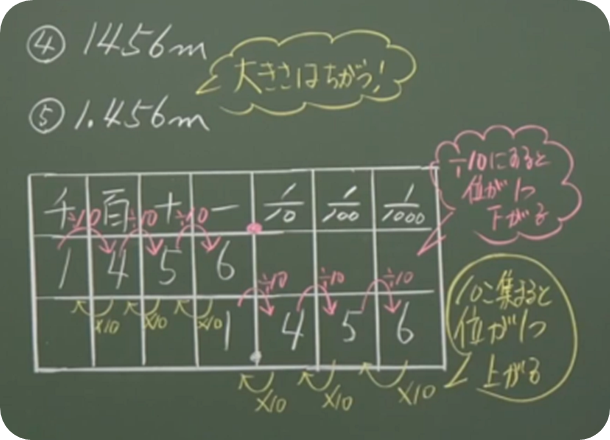 ④ 1456m
大きさはちがう!
⑤ 1.456m
÷10にすると
位が1つ
下がる
千 百 十 一 1/10 1/100 1/1000
÷10 ÷10 ÷10
1 4 5 6
×10 ×10 ×10
÷10 ÷10 ÷10
1 4 5 6
×10 ×10 ×10
10こ集まると
位が1つ
上がる